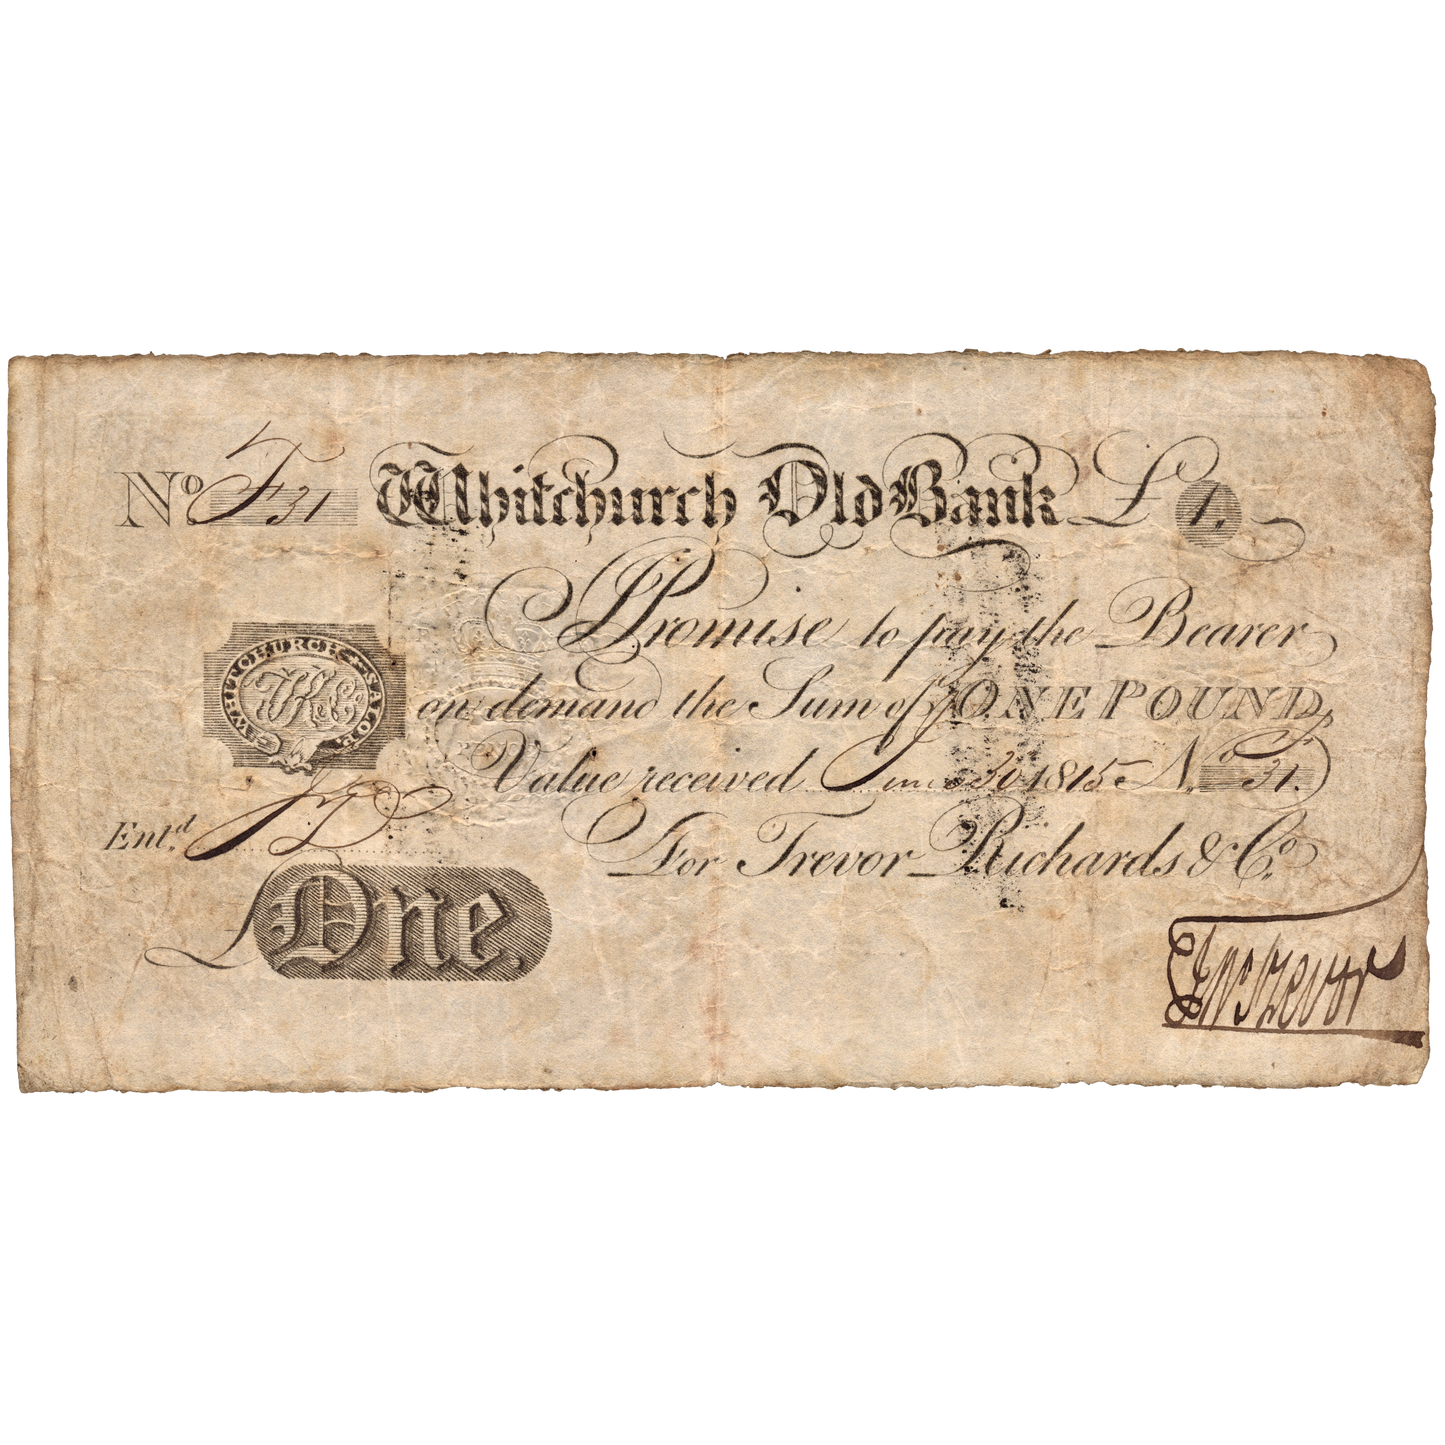 No. F31 Whitchurch Old Bank £1.
I Promise to pay the Bearer
on demand the Sum of ONE POUND,
Value received June 30 1815 No. 31.
For Trevor Richards & Co.
WHITCHURCH SALOP.
TR&Co
Entd.
£ One.
Trevor